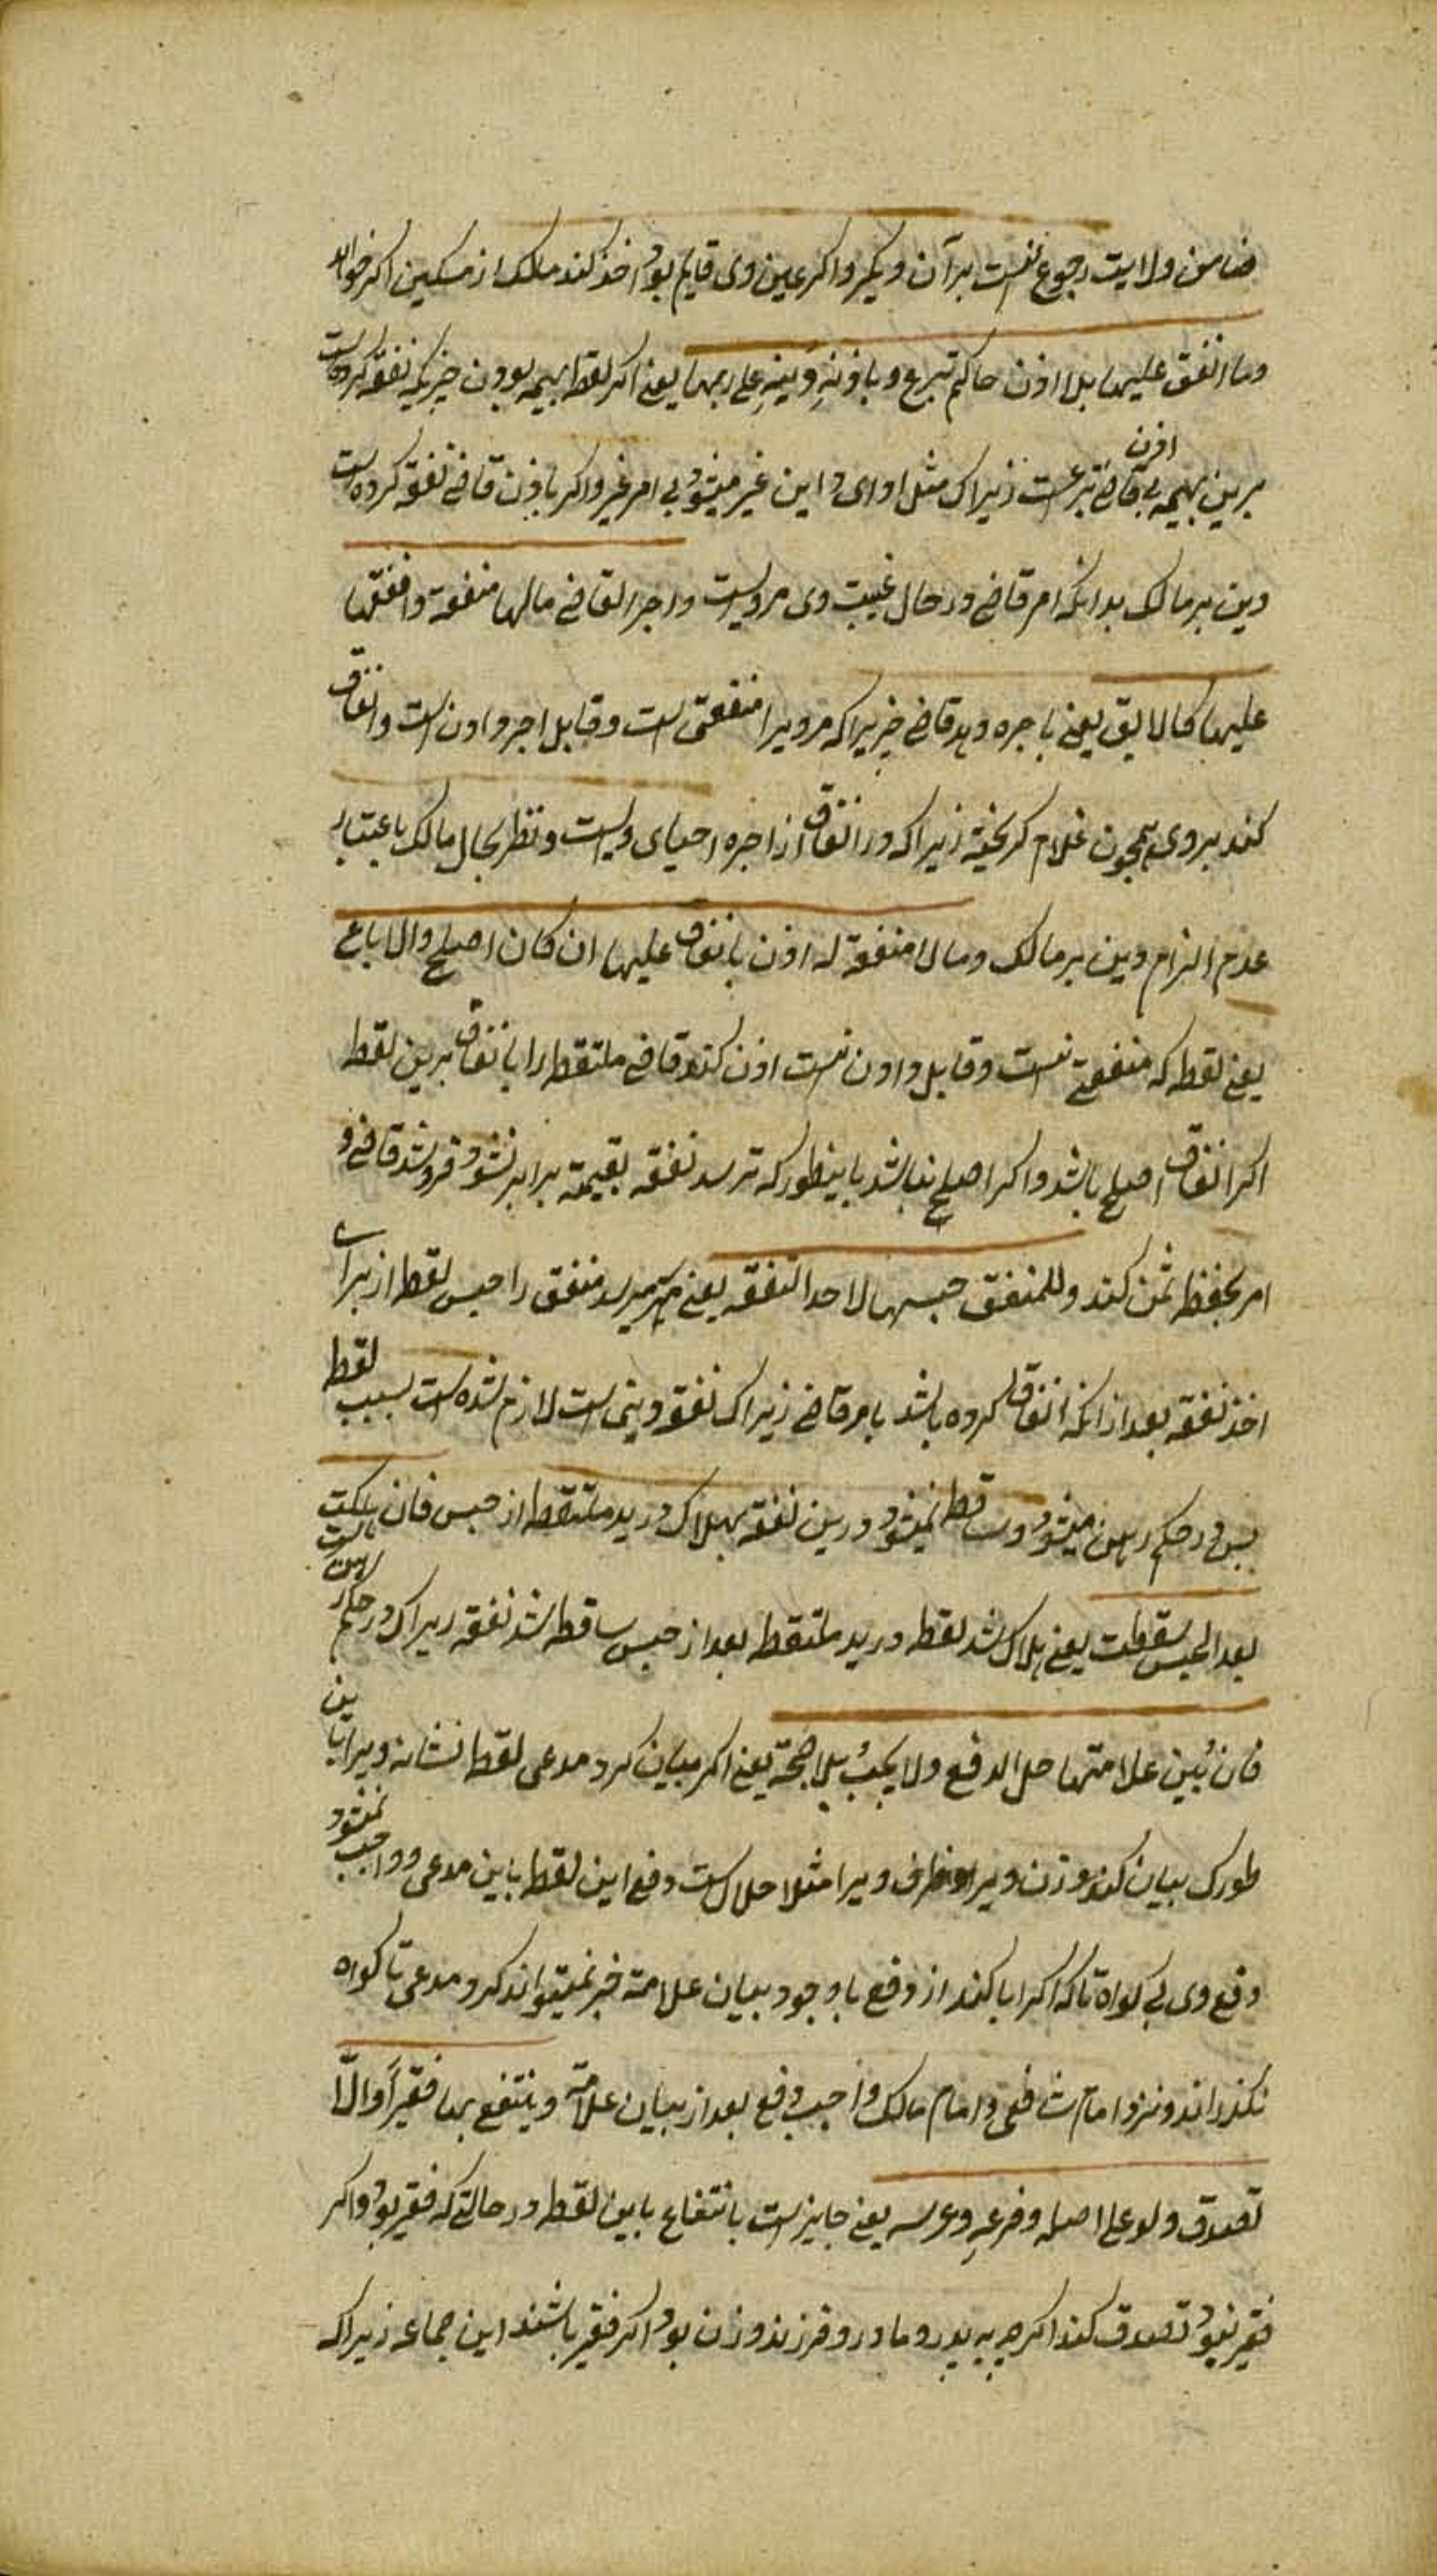 ضامن ولایت رجوع نیست برآن دیگر واکر عین وی قایم بود اخذ کند ملک از مسکین اکر خواهد
وما انفق علیها بلا اذن حاکم تبرع و باذنه دینه علی ربها یعنی اکر لقطه بهیمه بود ن چیزیکه نفقه کرده است
برین بهیمه بی اذن قاضی تبرعست زیراک مثل ادای داین غیر میشود بی امر غیر واکر باذن قاضی نفقه کرده است
دین بر مالک بدانکه امر قاضی در حال غیبت وی مرویراست واجر القاضی مالها منفعة وانفقها
علیها کالابق یعنی باجره دهد قاضی چیزیرا که مرویرا منفعتی است وقابل اجر دادن است وانفاق
کند بروی همچون غلام کریخته زیراکه در انفاق از اجره احیای ویست ونظر بحال مالک باعتبار
عدم الزام دین بر مالک وما لا منفعة له اذن بانفاق علیها ان کان اصلح والا باع
یعنی لقطه که منفعتی نیست وقابل دادن نیست اذن کند قاضی ملتقط را بانفاق برین لقطه
اکر انفاق اصلح باشد واکر اصلح نباشد باینطور که ترسد نفقه بقیمة برابر نشود فروشد قاضی و
امر بحفظ ثمن کند وللمنفق حبسها لاخذ النفقه یعنی میرسد منفق را حبس لقطه از برای
اخذ نفقه بعد ازانکه انفاق کرده باشد بامر قاضی زیراک نفقه دینی است لازم شده است بسبب لقطه
پس در حکم رهن میشود وساقط نمیشود درین نفقه بهلاک در ید ملتقط از حبس فان هلکت
بعد الحبس سقطت یعنی هلاک شد لقطه در ید ملتقط بعد از حبس ساقط شد نفقه زیراک در حکم رهن است
فان بین علامتها حل الدفع ولا یجب بلا حجة یعنی اکر بیان کرد مدعی لقطه نشانه ویرا باین
طورک بیان کند وزن ویرا وظرف ویرا مثلا حلال است دفع این لقطه باین مدعی وواجب نمیشود
دفع وی بی کواه تاکه اکر ابا کند از دفع باوجود بیان علامة جبر نمیتواند کرد مدعی تا کواه
نکذراند ونزد امام شافعی وامام مالک واجب دفع بعد از بیان علامة وینتفع بها فقیرا والا
تصدق ولو علی اصله وفرعه وعرسه یعنی جایز است بانتفاع باین لقطه در حالتی که فقیر بود واکر
فقیر نبود تصدق کند اکرچه به پدر ومادر وفرزند وزن بود اکر فقیر باشند این جماعه زیراکه